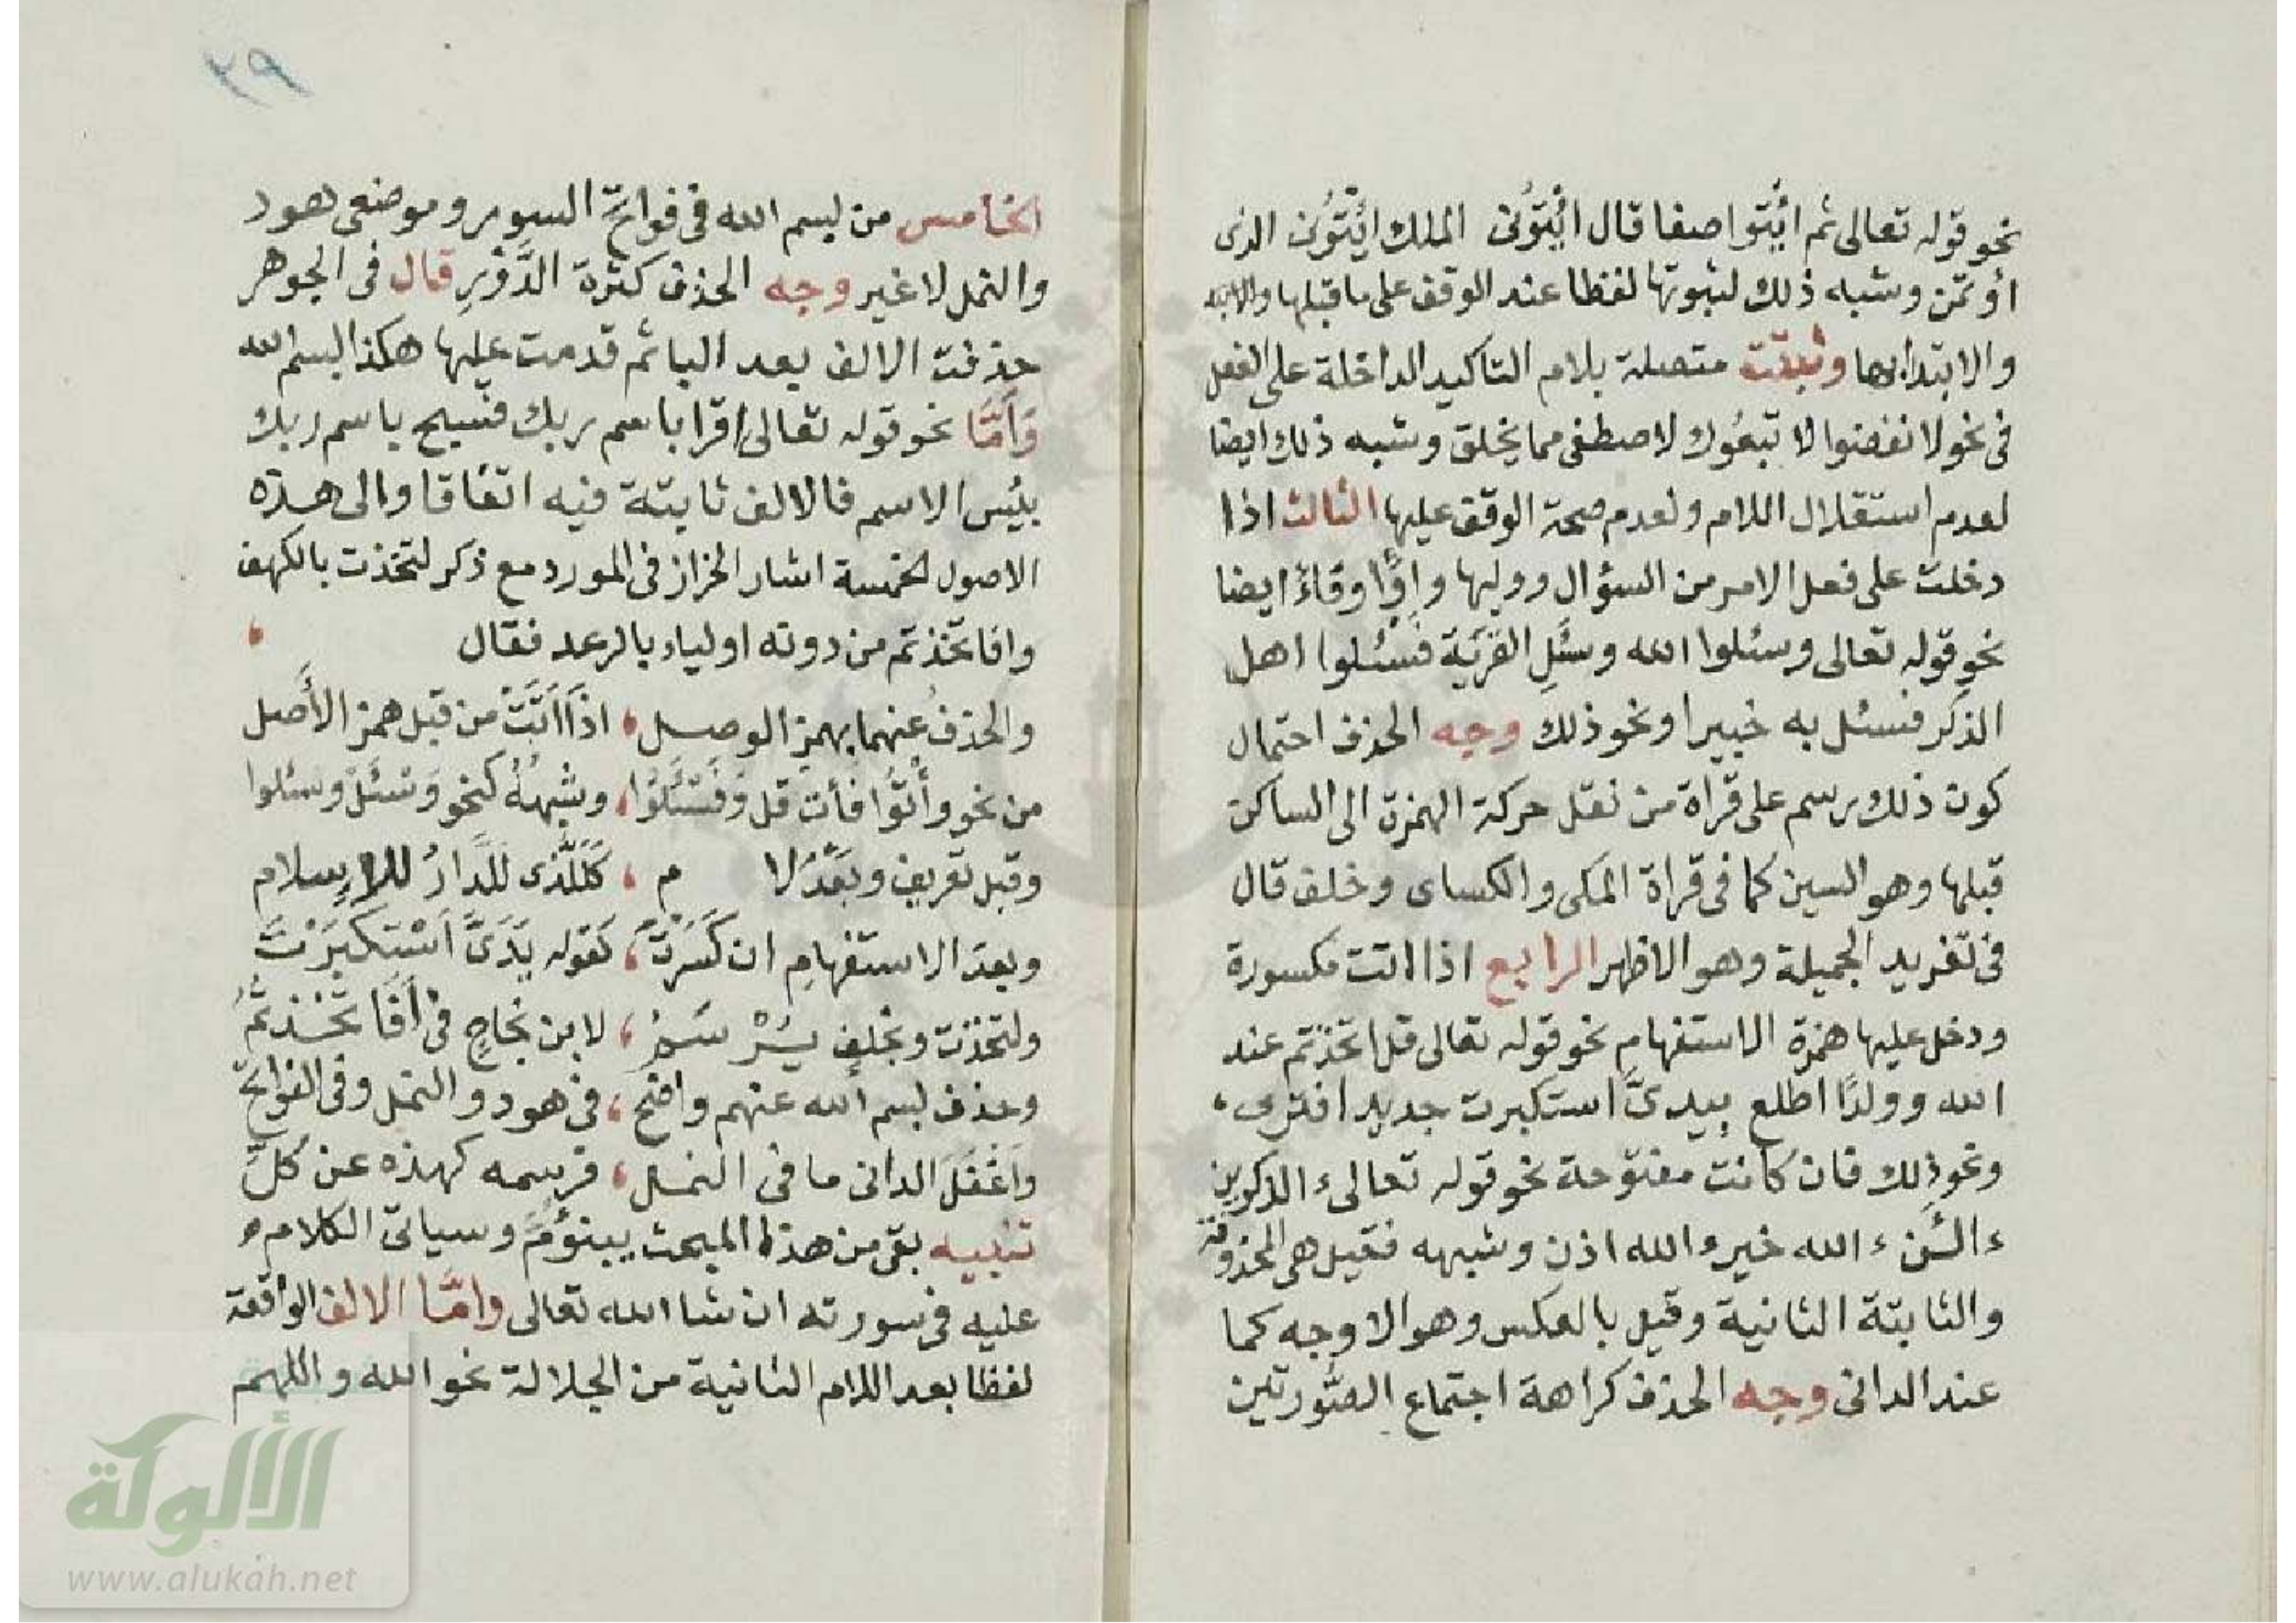 نحو قوله تعالى ثم ائتوا صفا قال ائتونى الملك ائتونى الذى
اؤتمن وشبه ذلك لثبوتها لفظا عند الوقف على ما قبلها
والابتدا بها وثبتت متصلة بلام التاكيد الداخلة على الفعل
فى نحو لانفضوا لاتبعوك لاصطفى مما يخلق وشبه ذلك ايضا
لعدم استقلال اللام ولعدم صحة الوقف عليها الثالث اذا
دخلت على فعل الامر من السؤال ووليها واوًا وفاءً ايضا
نحو قوله تعالى وسئلوا الله وسئل القرية فسئلوا اهل
الذكر فسئل به خبيرا ونحو ذلك وجه الحذف احتمال
كون ذلك رسم على قراة من نقل حركة الهمزة الى الساكن
قبلها وهو السين كما فى قراة المكى والكساى وخلف قال
فى تغريد الجميلة وهو الاظهر الرابع اذا اتت مكسورة
ودخل عليها همزة الاستفهام نحو قوله تعالى قل اتخذتم عند
الله وولدًا اطلع بيدىَّ استكبرت جديد افترى،
ونحو ذلك فان كانت مفتوحة نحو قوله تعالى ء الذكرين
ء الئن ء الله خير ء الله اذن وشبهه فقيل هى المحذوفة
والثابتة الثانية وقيل بالعكس وهو الاوجه كما
عند الدانى وجه الحذف كراهة اجتماع الصُّورتين
٣٩
الخامس من لبسم الله فى فواتح السور وموضعى هود
والنمل لا غير وجه الحذف كثرة الدَّوْرِ قال فى الجوهر
حذفت الالف بعد البا ثم قدمت عليها هكذا ابسم الله
وَأمَّا نحو قوله تعالى اقرا باسم ربك فسبح باسم ربك
بئس الاسم فالالف ثابتة فيه اتفاقا والى هذه
الاصول الخمسة اشار الخراز فى المورد مع ذكر لتخذت بالكهف
وافاتخذتم من دونه اولياء بالرعد فقال ،
والحذفُ عنهما بهمز الوصل ، اذا اَتَتْ من قبل همز الأَصل
من نحو وأْتُوا فأت قل وَفَسْئَلُوا ، وشبهُهُ كنحو وَسْئَلْ وسئلوا
وقبل تعريف وبَعْدَ لا م ، كَلَلَّذى لَلدَّارُ للاِسلام
وبعدَ الاستفهامِ ان كَسَرْتَ ، كقوله يَدَىَّ اَسْتَكْبَرْتَ
ولتخذت وبخلفٍ يُرْسَمُ ، لابن نجاحٍ فى أَفَاتَّخَذتُمُ
وحذف بسم الله عنهم واضح ، فى هود والنمل وفى الفواتح
وَأَغْفَلَ الدانى ما فى النمل ، فرسمه كهذه عن كلِّ
تنبيه بقى من هذا المبحث يبنؤمَّ وسياتى الكلام
عليه فى سورته ان شا الله تعالى وامَّا الالف الواقعة
لفظا بعد اللام الثانية من الجلالة نحو الله واللهم
الألوكة
www.alukah.net